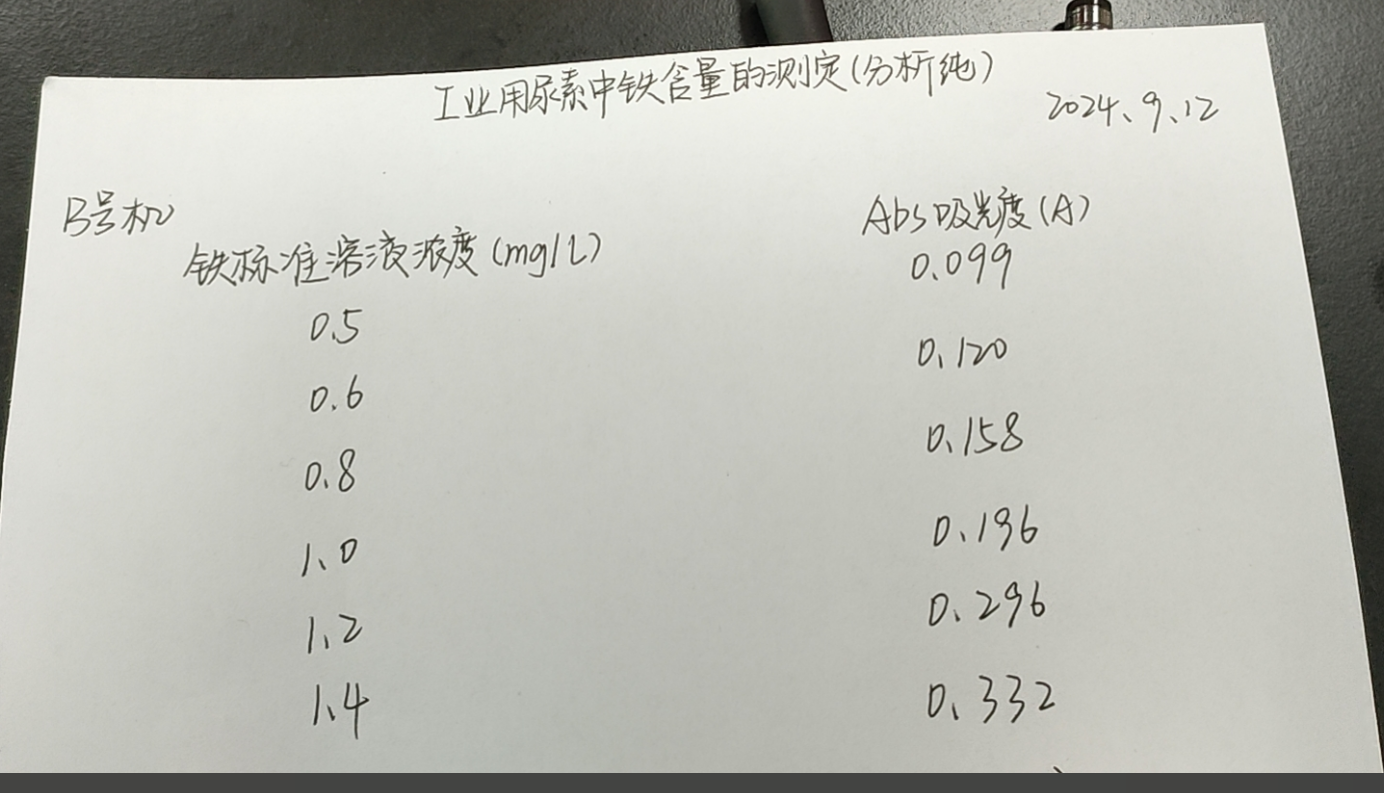 工业用尿素中铁含量的测定(分析纯)
2024、9、12
B号机
铁标准溶液浓度(mg/L) Abs吸光度(A)
0.5 0.099
0.6 0.120
0.8 0.158
1.0 0.196
1.2 0.296
1.4 0.332